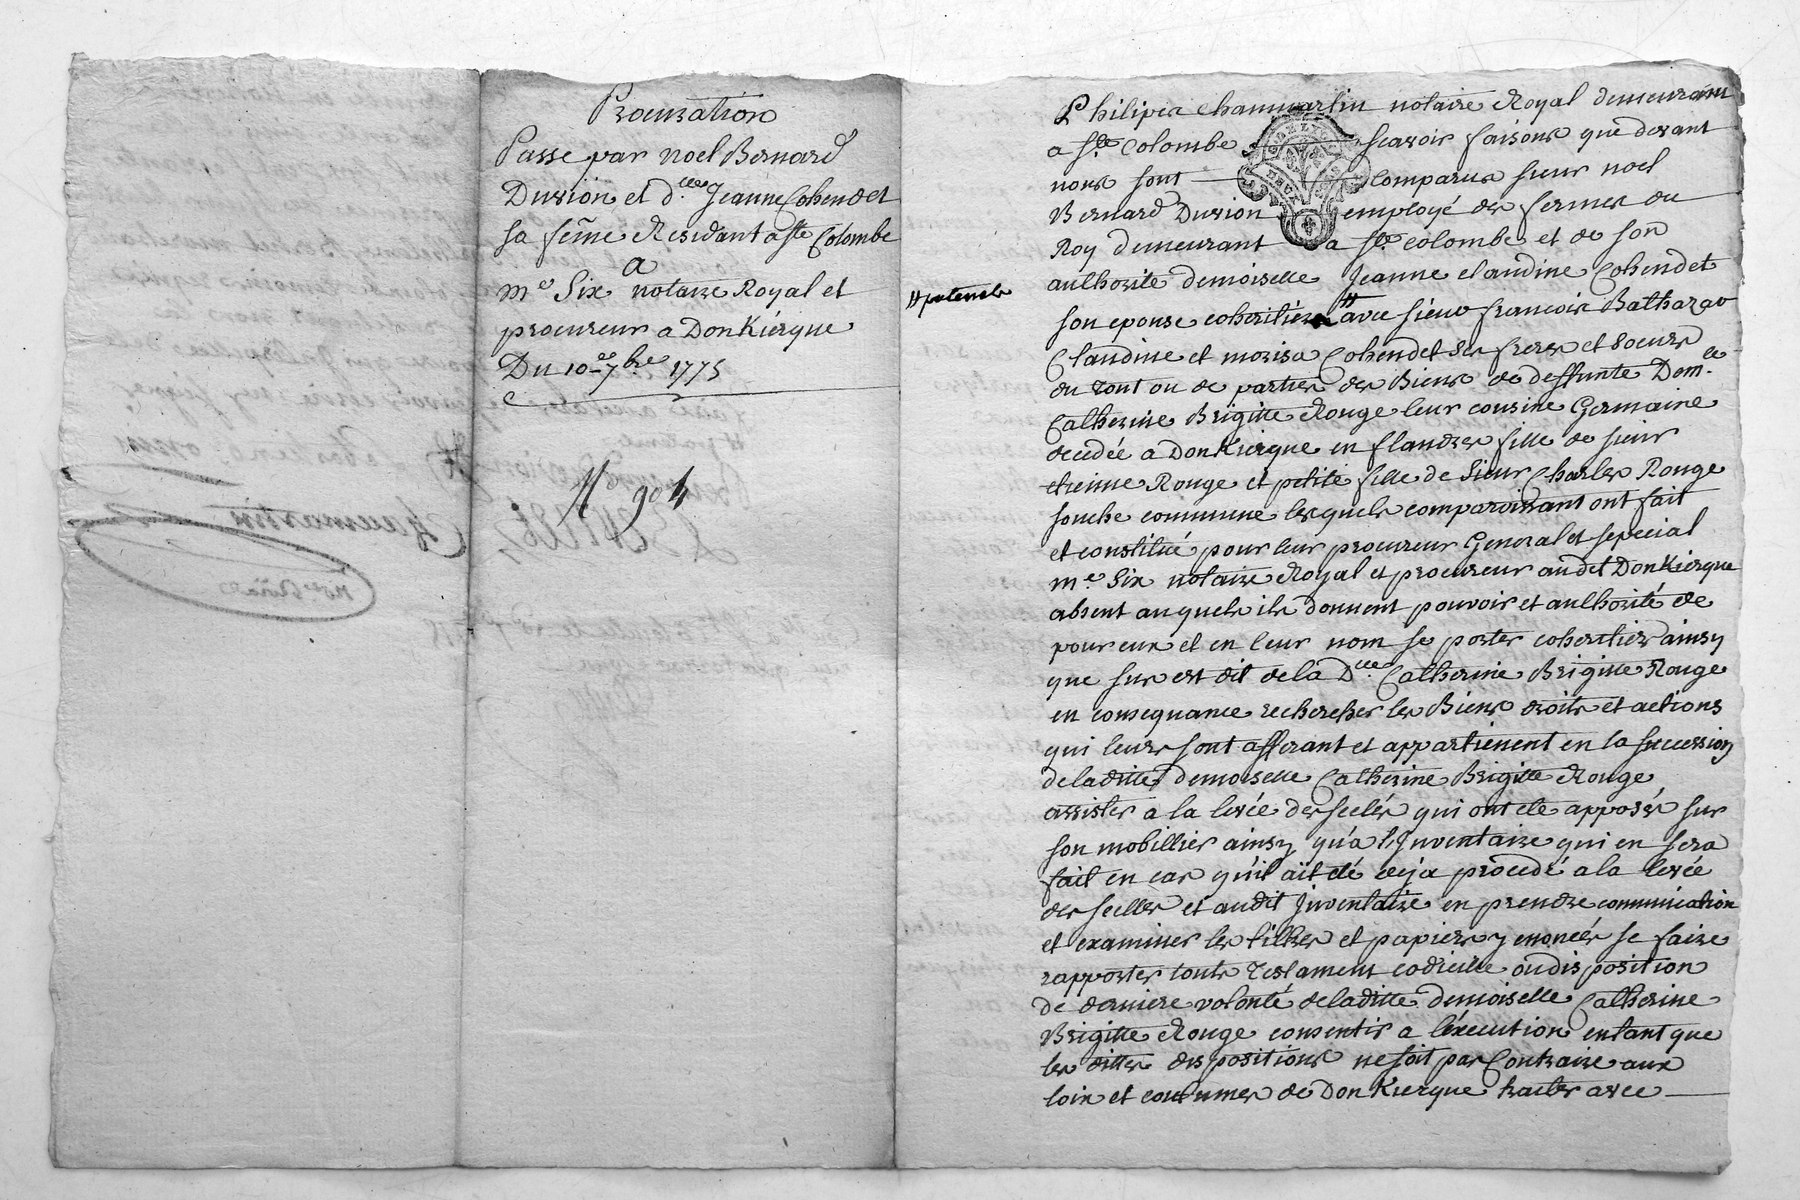 Procuration
Passe par noel Bernard
Duvion et d.lle Jeanne Cohendet
sa feme Residant a Ste Colombe
a
me Six notaire Royal et
procureur a DonKierque
Du 10e 7bre 1775
No 904
Philiper Chaumartin notaire Royal demeurant
a Ste Colombe scavoir faisons que devant
nous sont comparus sieur noel
Bernard Duvion employé des fermes du
Roy demeurant a Ste colombe et de son
authorité demoiselle Jeanne claudine Cohendet
son epouse coheritiere # avec sieur francois Batharar
# paternele
Claudine et Cohendet ses freres et soeurs
du tout ou de parties des Biens de deffunte Dem.lle
Catherine Brigitte Rouge leur cousine Germaine
decedée a DonKierque en flandres fille de sieur
etienne Rouge et petite fille de Sieur Charles Rouge
souche commune lesquels comparoissant ont fait
et constitué pour leur procureur General et special
me Six notaire Royal et procureur audit DonKierque
absent auquels ils donnent pouvoir et authorité de
pour eux et en leur nom se porter coheritiers ainsy
que sus est dit de la D.lle Catherine Brigitte Rouge
en consequance rechercher les Biens droits et actions
qui leurs sont afferant et appartienent en la succession
de laditte demoiselle Catherine Brigitte Rouge
assister a la levée des scelés qui ont ete apposés sur
son mobillier ainsy qu'a l'Inventaire qui en sera
fait en cas qu'il ait eté deja procedé a la levée
des scelles et audit Inventaire en prendre communication
et examiner les tiltres et papiers y enoncés se faire
rapporter touts Testament codicille ou disposition
de derniere volonté de laditte demoiselle Catherine
Brigitte Rouge consentir a l'execution entant que
les dittes dispositions ne soit pas Contraire aux
loix et coutumes de DonKierque traiter avec